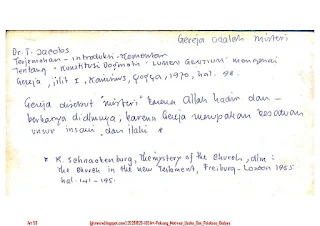 Gereja adalah misteri
Dr. T. Jacobs
Terjemahan - Introduksi - Komentar
Tentang "Konstitusi Dogmatis "LUMEN GENTIUM" mengenai
Gereja, jilid I, Kanisius, Yogya, 1970, hal. 98.
Gereja disebut "misteri" karena Allah hadir dan
berkarya didlmnya; karena Gereja merupakan kesatuan
unsur insani dan ilahi *
* R. Schnackenburg, The mystery of the Church, dlm:
The Church in the New Testament, Freiburg - London 1965
hal. 141 - 195.